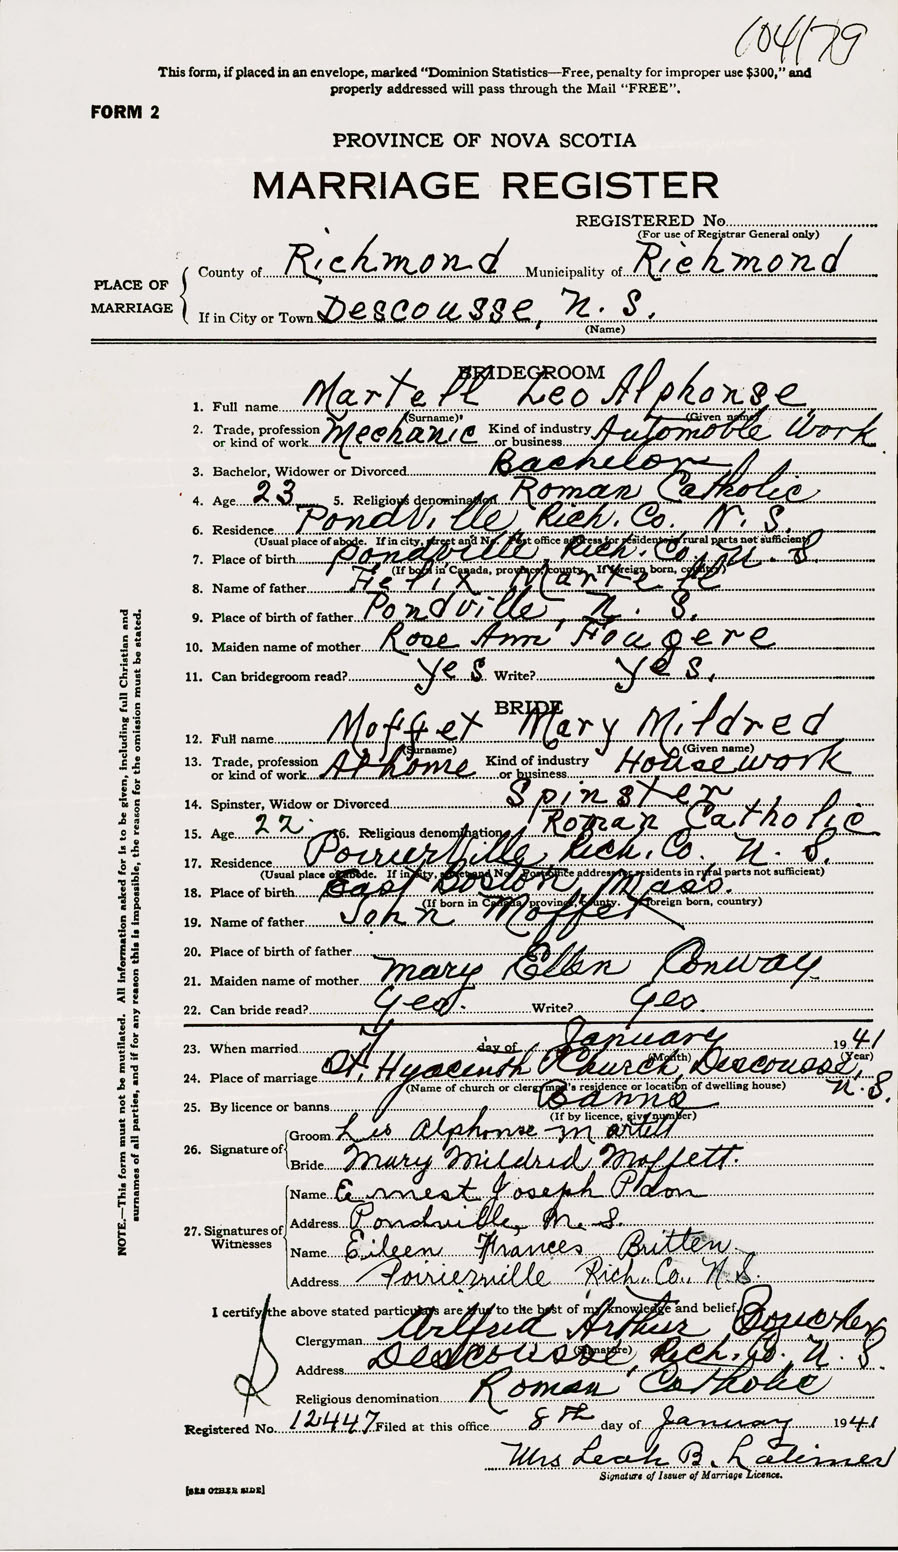 104179
This form, if placed in an envelope, marked "Dominion Statistics—Free, penalty for improper use $300," and
properly addressed will pass through the Mail "FREE".
FORM 2
PROVINCE OF NOVA SCOTIA
MARRIAGE REGISTER
REGISTERED No.
(For use of Registrar General only)
PLACE OF MARRIAGE
County of Richmond Municipality of Richmond
If in City or Town Descousse, N. S.
(Name)
BRIDEGROOM
1. Full name Martell Leo Alphonse
(Surname) (Given name)
2. Trade, profession or kind of work Mechanic Kind of industry or business Automoble Work
3. Bachelor, Widower or Divorced Bachelor
4. Age 23 5. Religious denomination Roman Catholic
6. Residence Pondville Rich. Co. N. S.
(Usual place of abode. If in city, street and No. Post office address for residents in rural parts not sufficient)
7. Place of birth Pondville Rich. Co. N. S
(If born in Canada, province, county. If foreign born, country)
8. Name of father Felix Martell
9. Place of birth of father Pondville, N. S.
10. Maiden name of mother Rose Ann Fougere
11. Can bridegroom read? yes Write? yes.
BRIDE
12. Full name Moffet Mary Mildred
(Surname) (Given name)
13. Trade, profession or kind of work At home Kind of industry or business Housework
14. Spinster, Widow or Divorced Spinster
15. Age 22. 16. Religious denomination Roman Catholic
17. Residence Poirierville, Rich. Co., N. S.
(Usual place of abode. If in city, street and No. Post office address for residents in rural parts not sufficient)
18. Place of birth East Boston, Mass.
(If born in Canada, province, county. If foreign born, country)
19. Name of father John Moffet
20. Place of birth of father
21. Maiden name of mother Mary Ellen Conway
22. Can bride read? Yes. Write? Yes
23. When married 7 day of January 1941
(Month) (Year)
24. Place of marriage St. Hyacinth Church, Descousse, N. S.
(Name of church or clergyman's residence or location of dwelling house)
25. By licence or banns Banns
(If by licence, give number)
26. Signature of
Groom Leo Alphonse Martell
Bride Mary Mildred Moffett.
27. Signatures of Witnesses
Name Ernest Joseph
Address Pondville, N. S.
Name Eileen Frances Britten
Address Poirierville Rich. Co., N. S.
I certify the above stated particulars are true to the best of my knowledge and belief.
Clergyman Wilfred Arthur
(Signature)
Address Descousse, Rich. Co. N. S.
Religious denomination Roman Catholic
Registered No. 12447 Filed at this office 8th day of January 1941
Mrs Leah B. Latimer
Signature of Issuer of Marriage Licence.
[SEE OTHER SIDE]
NOTE.—This form must not be mutilated. All information asked for is to be given, including full Christian and
surnames of all parties, and if for any reason this is impossible, the reason for the omission must be stated.